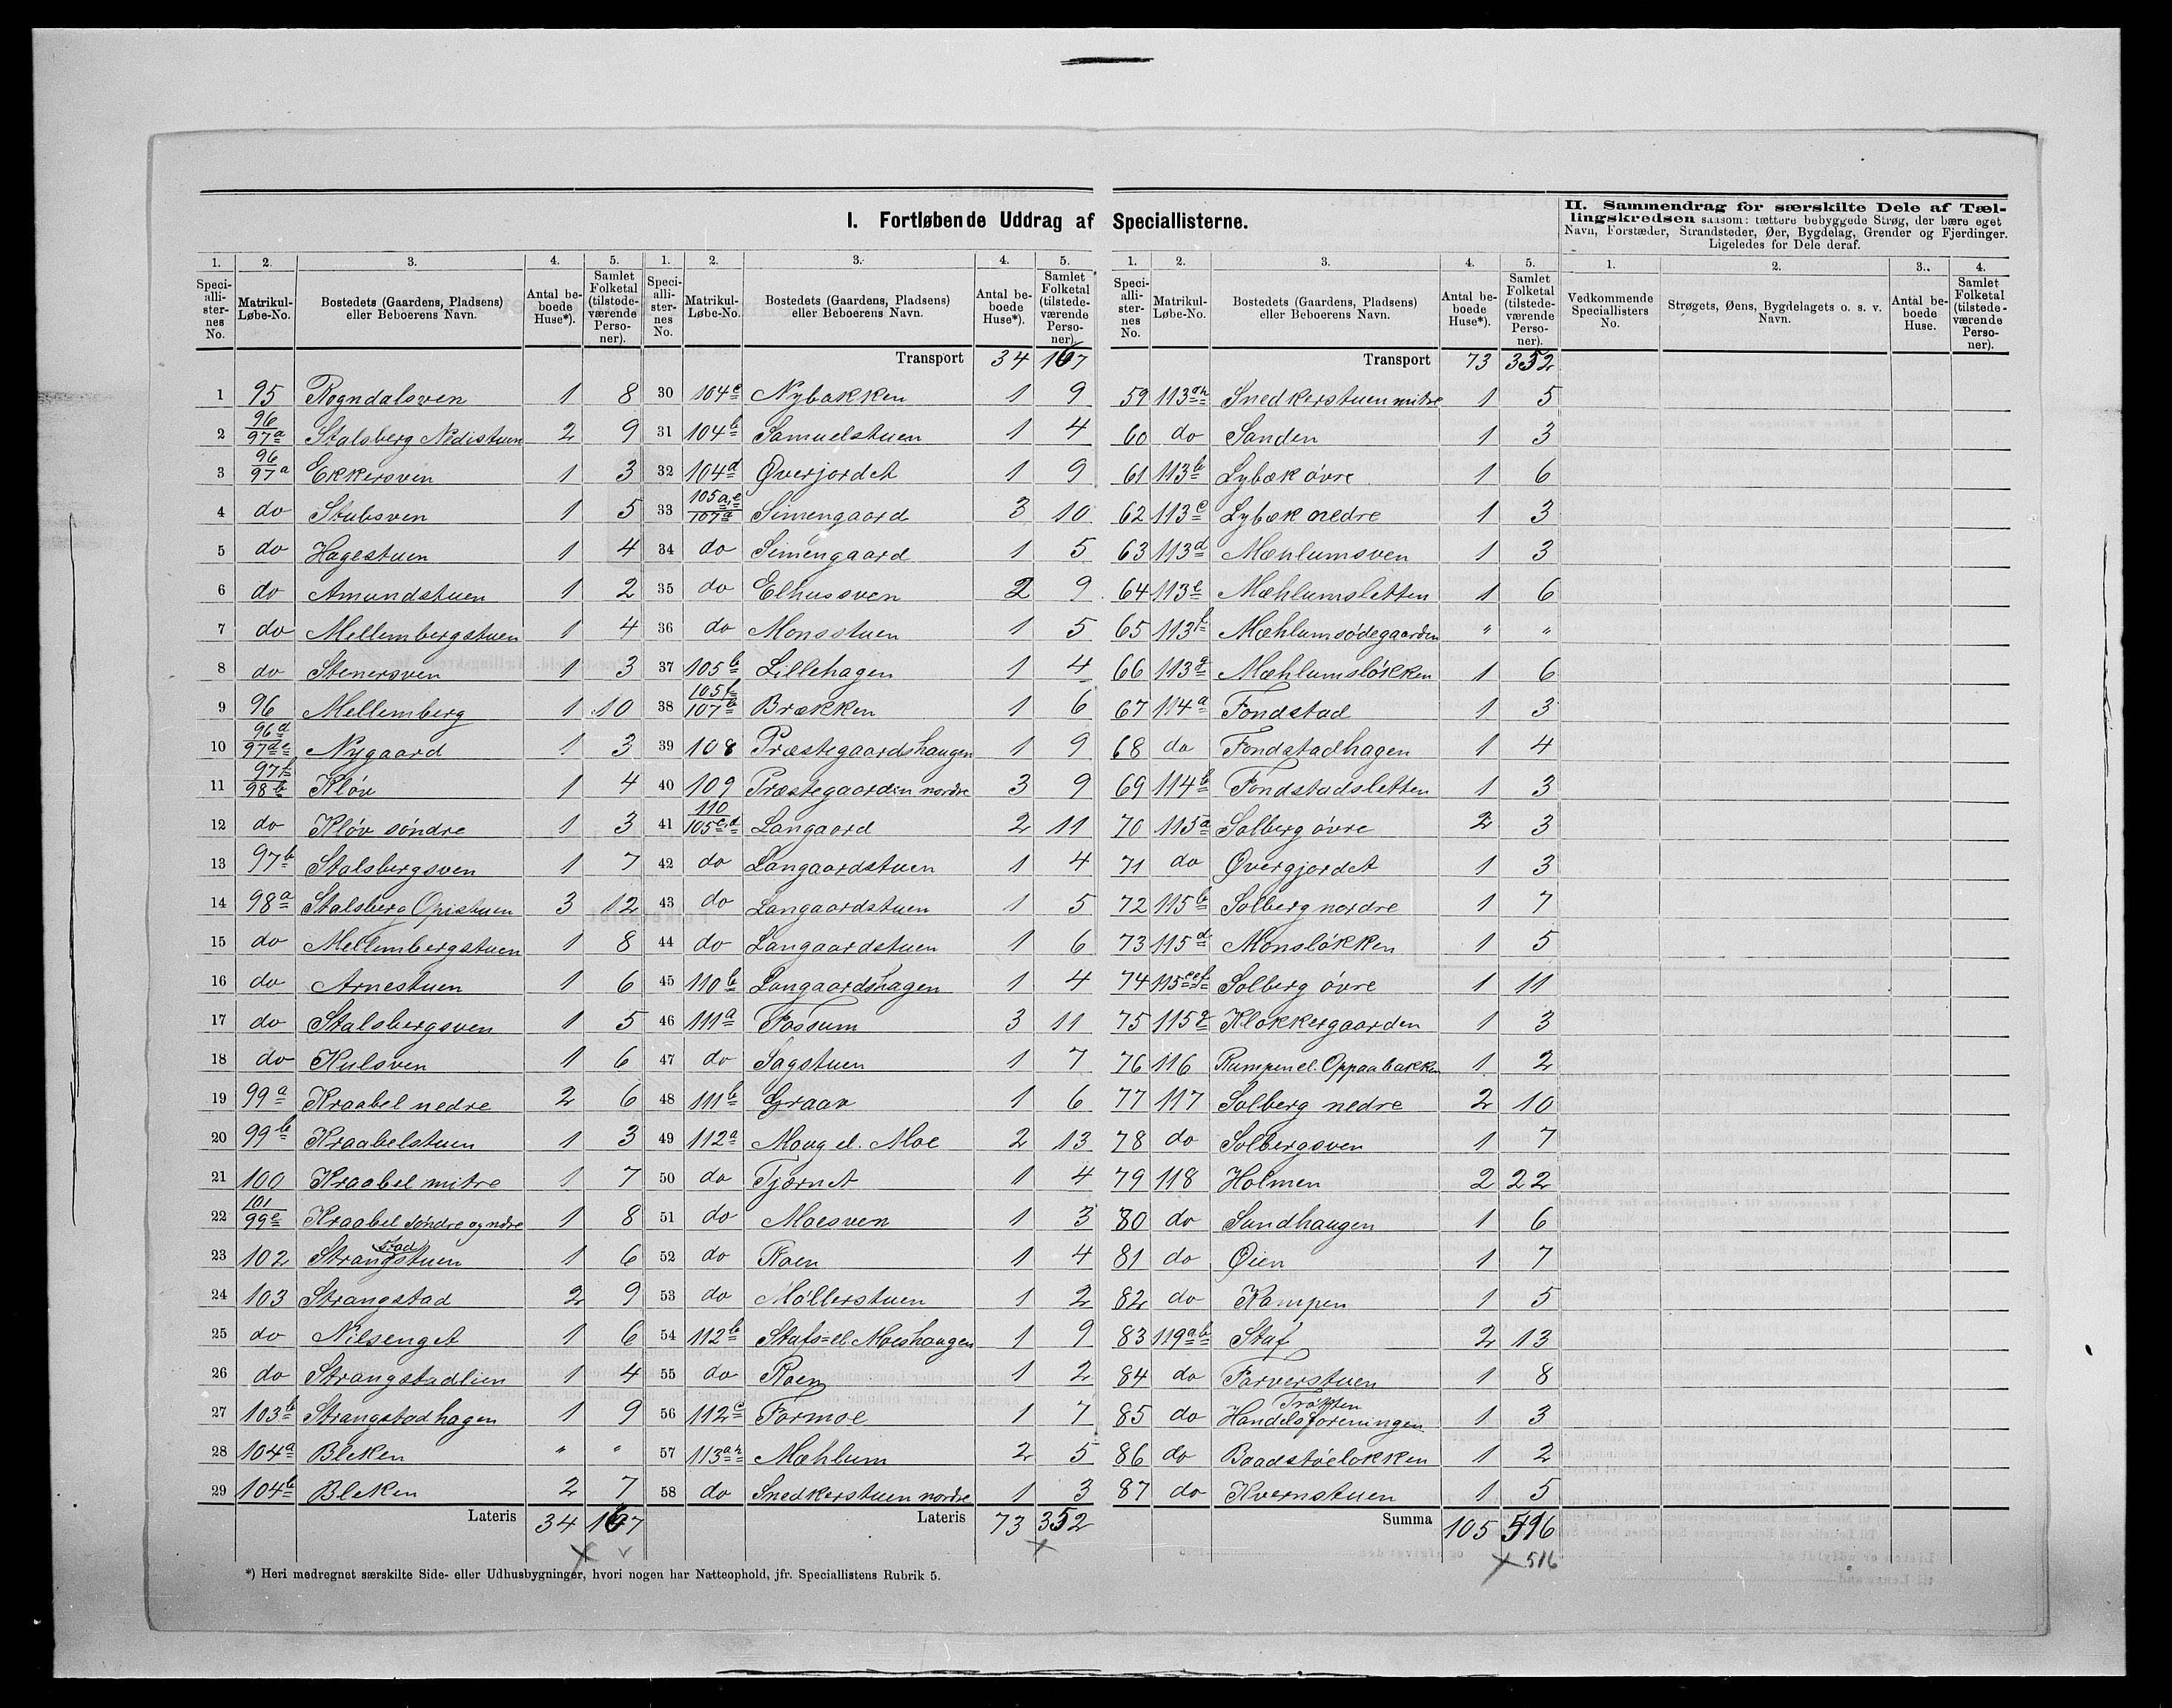 I. Fortløbende Uddrag af Speciallisterne.
II. Sammendrag for særskilte Dele af Tæl-
lingskredsen saasom: tættere bebyggede Strøg, der bære eget
Navn, Forstæder, Strandsteder, Øer, Bygdelag, Grender og Fjerdinger.
Ligeledes for Dele deraf.
1. 2. 3. 4. 5. 1. 2. 3. 4. 5. 1. 2. 3. 4. 5. 1. 2. 3. 4.
Speci-alli-ster-nes No. Matrikul-Løbe-No. Bostedets (Gaardens, Pladsens) eller Beboerens Navn. Antal be-boede Huse*). Samlet Folketal (tilstede-værende Perso-ner).
Speci-alli-ster-nes No. Matrikul-Løbe-No. Bostedets (Gaardens, Pladsens) eller Beboerens Navn. Antal be-boede Huse*). Samlet Folketal (tilstede-værende Perso-ner).
Speci-alli-ster-nes No. Matrikul-Løbe-No. Bostedets (Gaardens, Pladsens) eller Beboerens Navn. Antal be-boede Huse*). Samlet Folketal (tilstede-værende Perso-ner).
Vedkommende Speciallisters No. Strøgets, Øens, Bygdelagets o. s. v. Navn. Antal be-boede Huse. Samlet Folketal (tilstede-værende Perso-ner).
1 95 Rogndalsven 1 8
2 96/97a Stalsberg Nedistuen 2 9
3 96/97a Ekkersven 1 3
4 do Stubsven 1 5
5 do Hagestuen 1 4
6 do Amundstuen 1 2
7 do Mellembergstuen 1 4
8 do Stenersven 1 3
9 96 Mellemberg 1 10
10 96d/97de Nygaard 1 3
11 97f/98b Kløv 1 4
12 do Kløv söndre 1 3
13 97b Stalsbergsven 1 7
14 98a Stalsberg Opistuen 3 12
15 do Mellembergstuen 1 8
16 do Arnestuen 1 6
17 do Stalsbergsven 1 5
18 do Kulsven 1 6
19 99a Kraabel nedre 2 6
20 99b Kraabelstuen 1 3
21 100 Kraabel mitre 1 7
22 101/99c Kraabel söndre og ndre 1 8
23 102 Strangstadstuen 1 6
24 103 Strangstad 2 9
25 do Nilsenget 1 6
26 do Strangstadlien 1 4
27 103b Strangstadhagen 1 9
28 104a Bleken " "
29 104b Bleken 2 7
Lateris 34 167
Transport 34 167
30 104c Nybakken 1 9
31 104b Samuelstuen 1 4
32 104d Øverjordet 1 9
33 105a,e/107a Simengaard 3 10
34 do Simengaard 1 5
35 do Elhussven 2 9
36 do Monsstuen 1 5
37 105b Lillehagen 1 4
38 105f/107b Brækken 1 6
39 108 Præstegaardshaugen 1 9
40 109 Præstegaarden nordre 3 9
41 110/105c,d Langaard 2 11
42 do Langaardstuen 1 4
43 do Langaardstuen 1 5
44 do Langaardstuen 1 6
45 110b Langaardshagen 1 4
46 111a Fossum 3 11
47 do Sagstuen 1 7
48 111b Graav 1 6
49 112a Moug el. Moe 2 13
50 do Tjernet 1 4
51 do Moesven 1 3
52 do Roen 1 4
53 do Möllerstuen 1 2
54 112b Stafs= el. Moeshaugen 1 9
55 do Roen 1 2
56 112c Formoe 1 7
57 113ah Mæhlum 2 5
58 do Snedkerstuen nordre 1 3
Lateris 73 352
Transport 73 352
59 113ah Snedkerstuen mitre 1 5
60 do Sanden 1 3
61 113b Lybæk övre 1 6
62 113c Lybæk nedre 1 3
63 113d Mæhlumsven 1 3
64 113e Mæhlumsletten 1 6
65 113f Mæhlumsödegaarden " "
66 113g Mæhlumslökken 1 6
67 114a Fondstad 1 3
68 do Fondstadhagen 1 4
69 114b Fondstadsletten 1 3
70 115a Solberg övre 2 3
71 do Øvergjordet 1 3
72 115b Solberg nordre 1 7
73 115d Monslökken 1 5
74 115cef Solberg övre 1 11
75 115g Klokkergaarden 1 3
76 116 Rumpen el. Oppaabakken 1 2
77 117 Solberg nedre 2 10
78 do Solbergsven 1 7
79 118 Holmen 2 22
80 do Sandhaugen 1 6
81 do Øien 1 7
82 do Kampen 1 5
83 119ab Staf 2 13
84 do Farverstuen 1 8
85 do Handelsforeningen 1 3
86 do Baadstöelökken 1 2
87 do Kvernstuen 1 5
Summa 105 516
516
*) Heri medregnet særskilte Side- eller Udhusbygninger, hvori nogen har Natteophold, jfr. Speciallistens Rubrik 5.